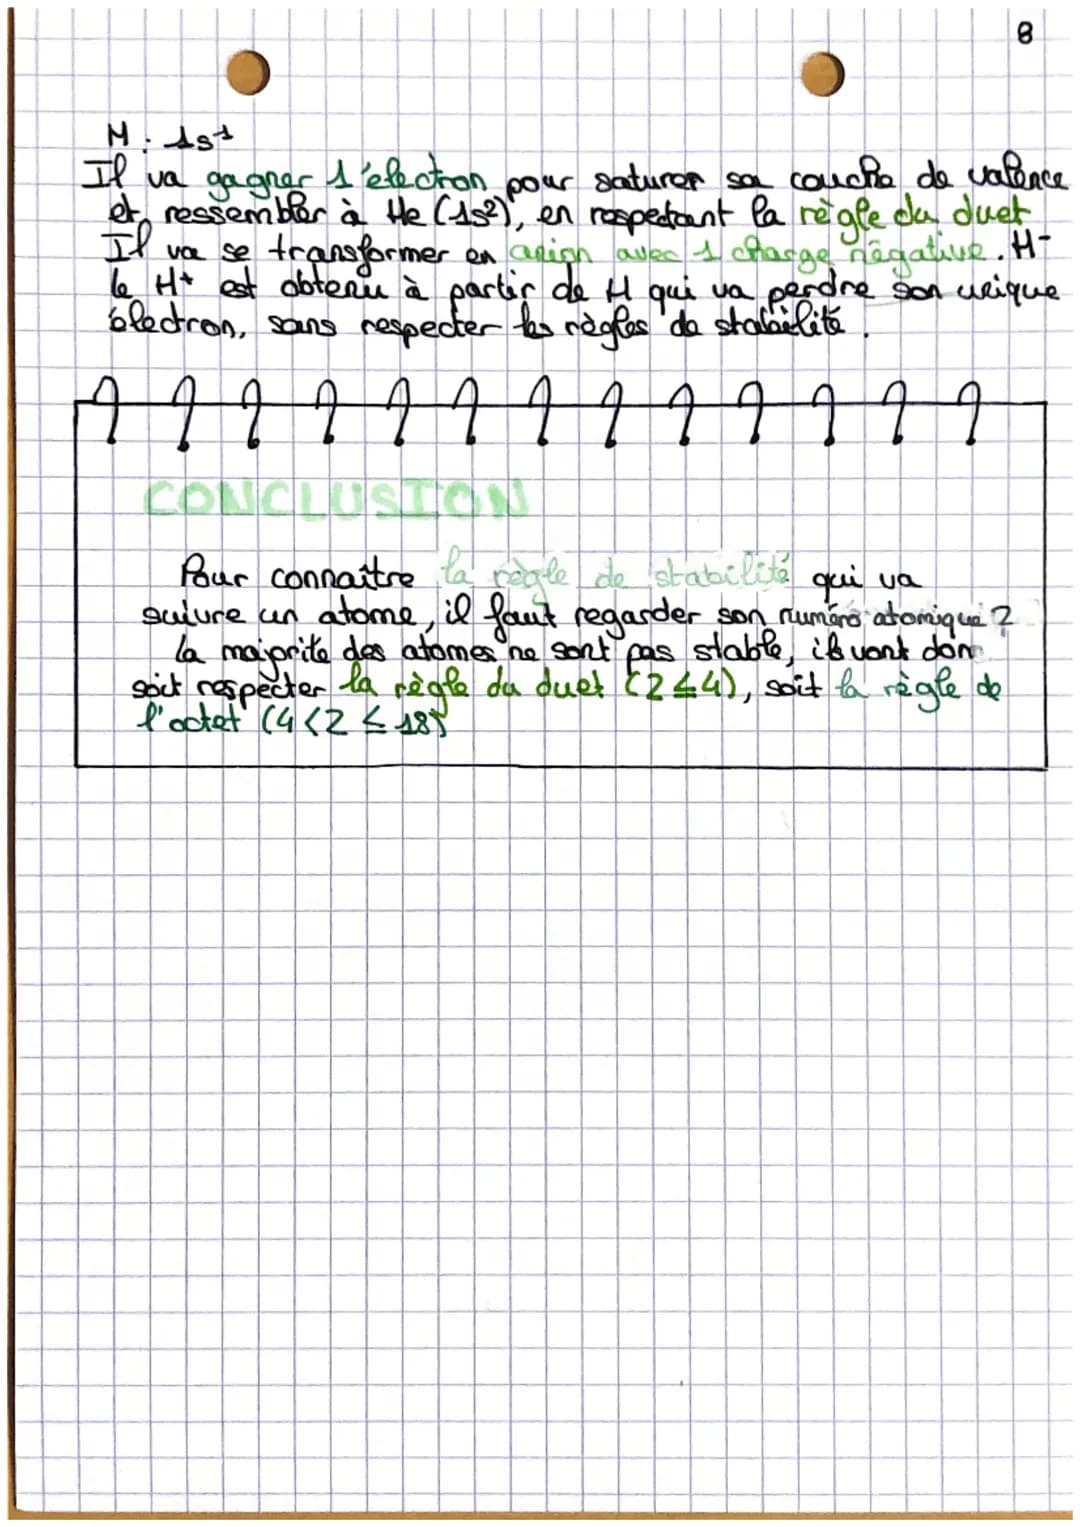 8
H : 1s¹
Il va gagner 1 électron pour saturer sa couche de valence
et ressembler à He (1s²), en respectant la règle du duet
Il va se transformer en anion avec 1 charge négative. H⁻
le H⁺ est obtenu à partir de H qui va perdre son unique
électron, sans respecter les règles de stabilité.
CONCLUSION
Pour connaître la règle de stabilité qui va
suivre un atome, il faut regarder son numéro atomique Z
La majorité des atomes ne sont pas stable, ils vont donc
soit respecter la règle du duet (Z≤4), soit la règle de
l'octet (4<Z≤18)